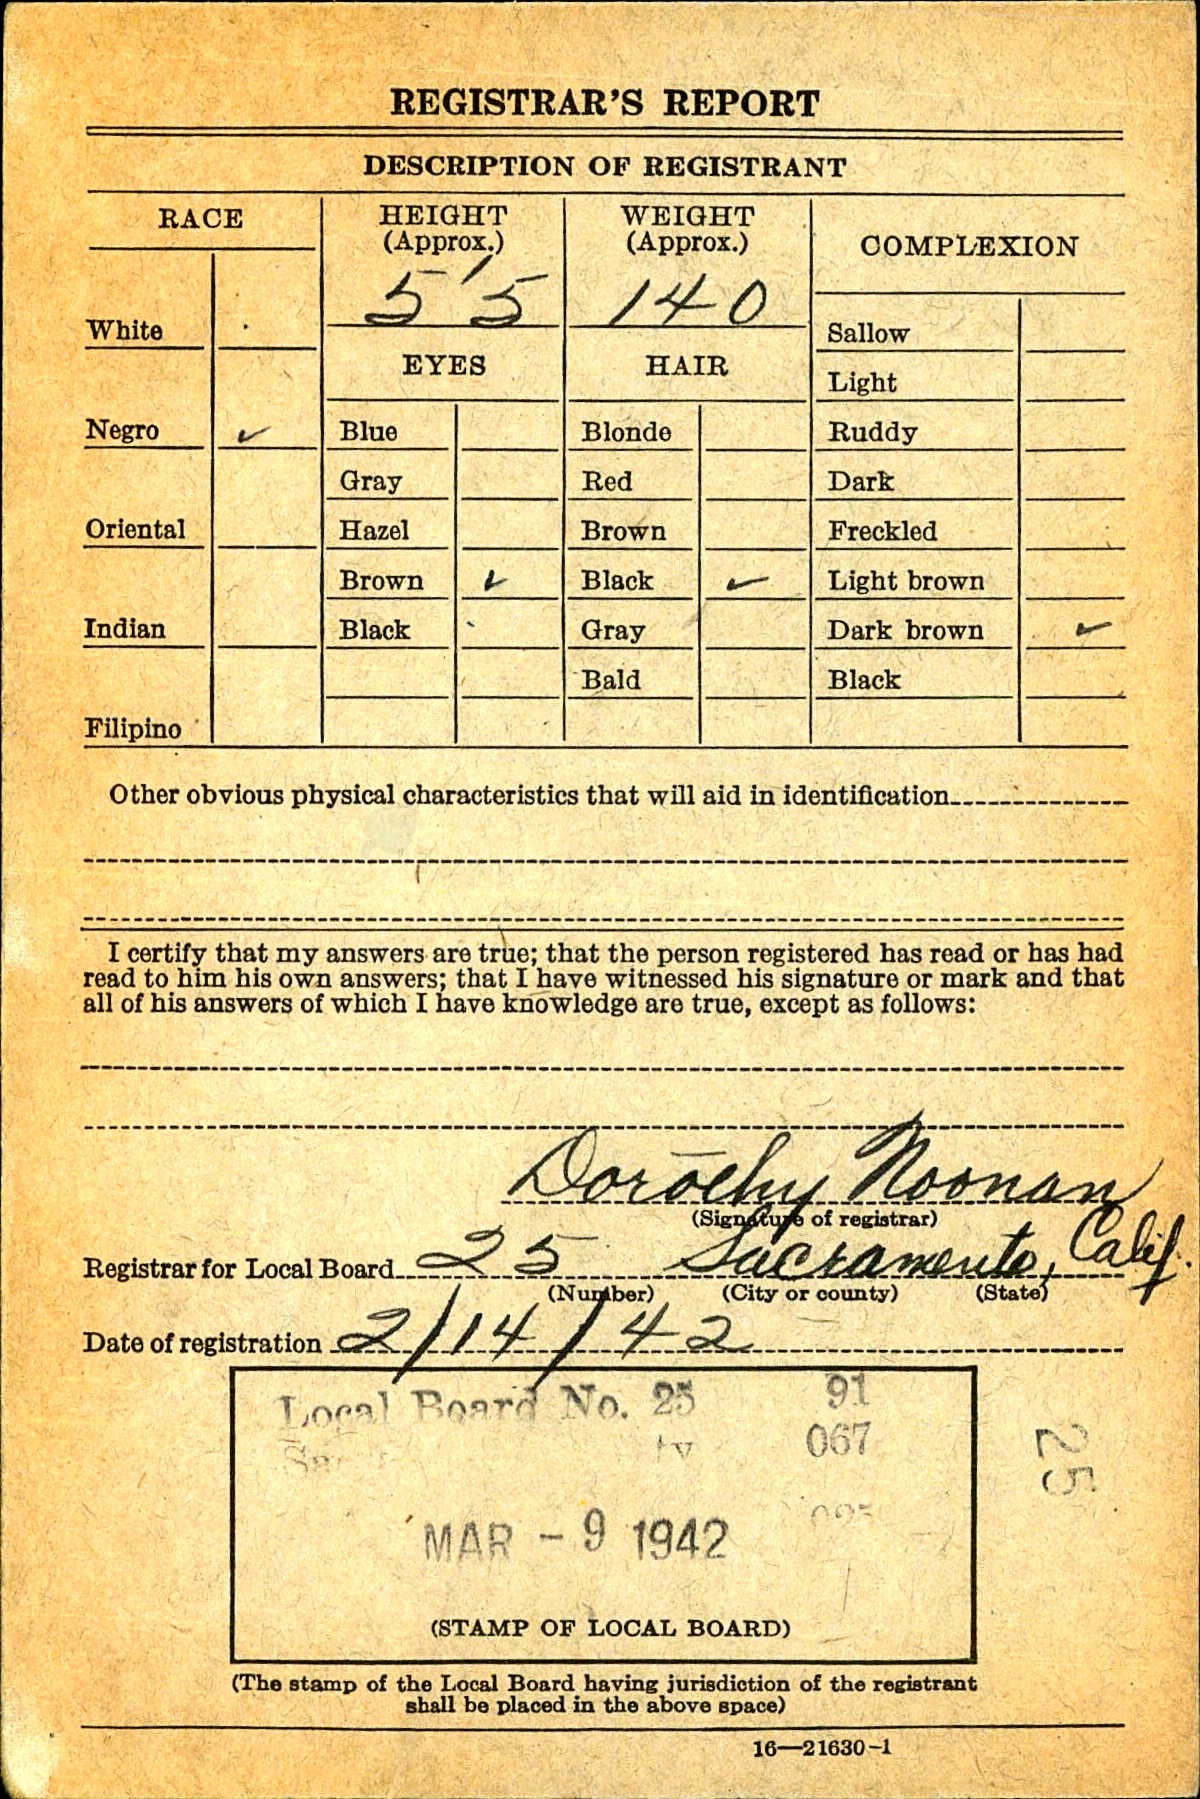 REGISTRAR'S REPORT
DESCRIPTION OF REGISTRANT
RACE
HEIGHT
(Approx.)
WEIGHT
(Approx.)
COMPLEXION
5' 5
140
White
Sallow
EYES
HAIR
Light
Negro ✓
Blue
Blonde
Ruddy
Gray
Red
Dark
Oriental
Hazel
Brown
Freckled
Brown ✓
Black ✓
Light brown
Indian
Black
Gray
Dark brown ✓
Bald
Black
Filipino
Other obvious physical characteristics that will aid in identification
I certify that my answers are true; that the person registered has read or has had
read to him his own answers; that I have witnessed his signature or mark and that
all of his answers of which I have knowledge are true, except as follows:
Dorothy Noonan
(Signature of registrar)
Registrar for Local Board 25 Sacramento, Calif.
(Number) (City or county) (State)
Date of registration 2/14/42
Local Board No. 25 91
067
25
MAR - 9 1942
(STAMP OF LOCAL BOARD)
(The stamp of the Local Board having jurisdiction of the registrant
shall be placed in the above space)
16—21630-1